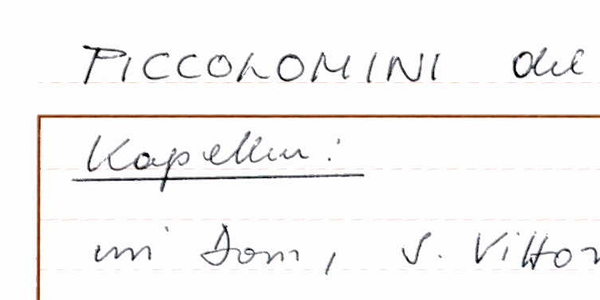 PICCOLOMINI del
Kapellen:
im Dom, S. Vittor